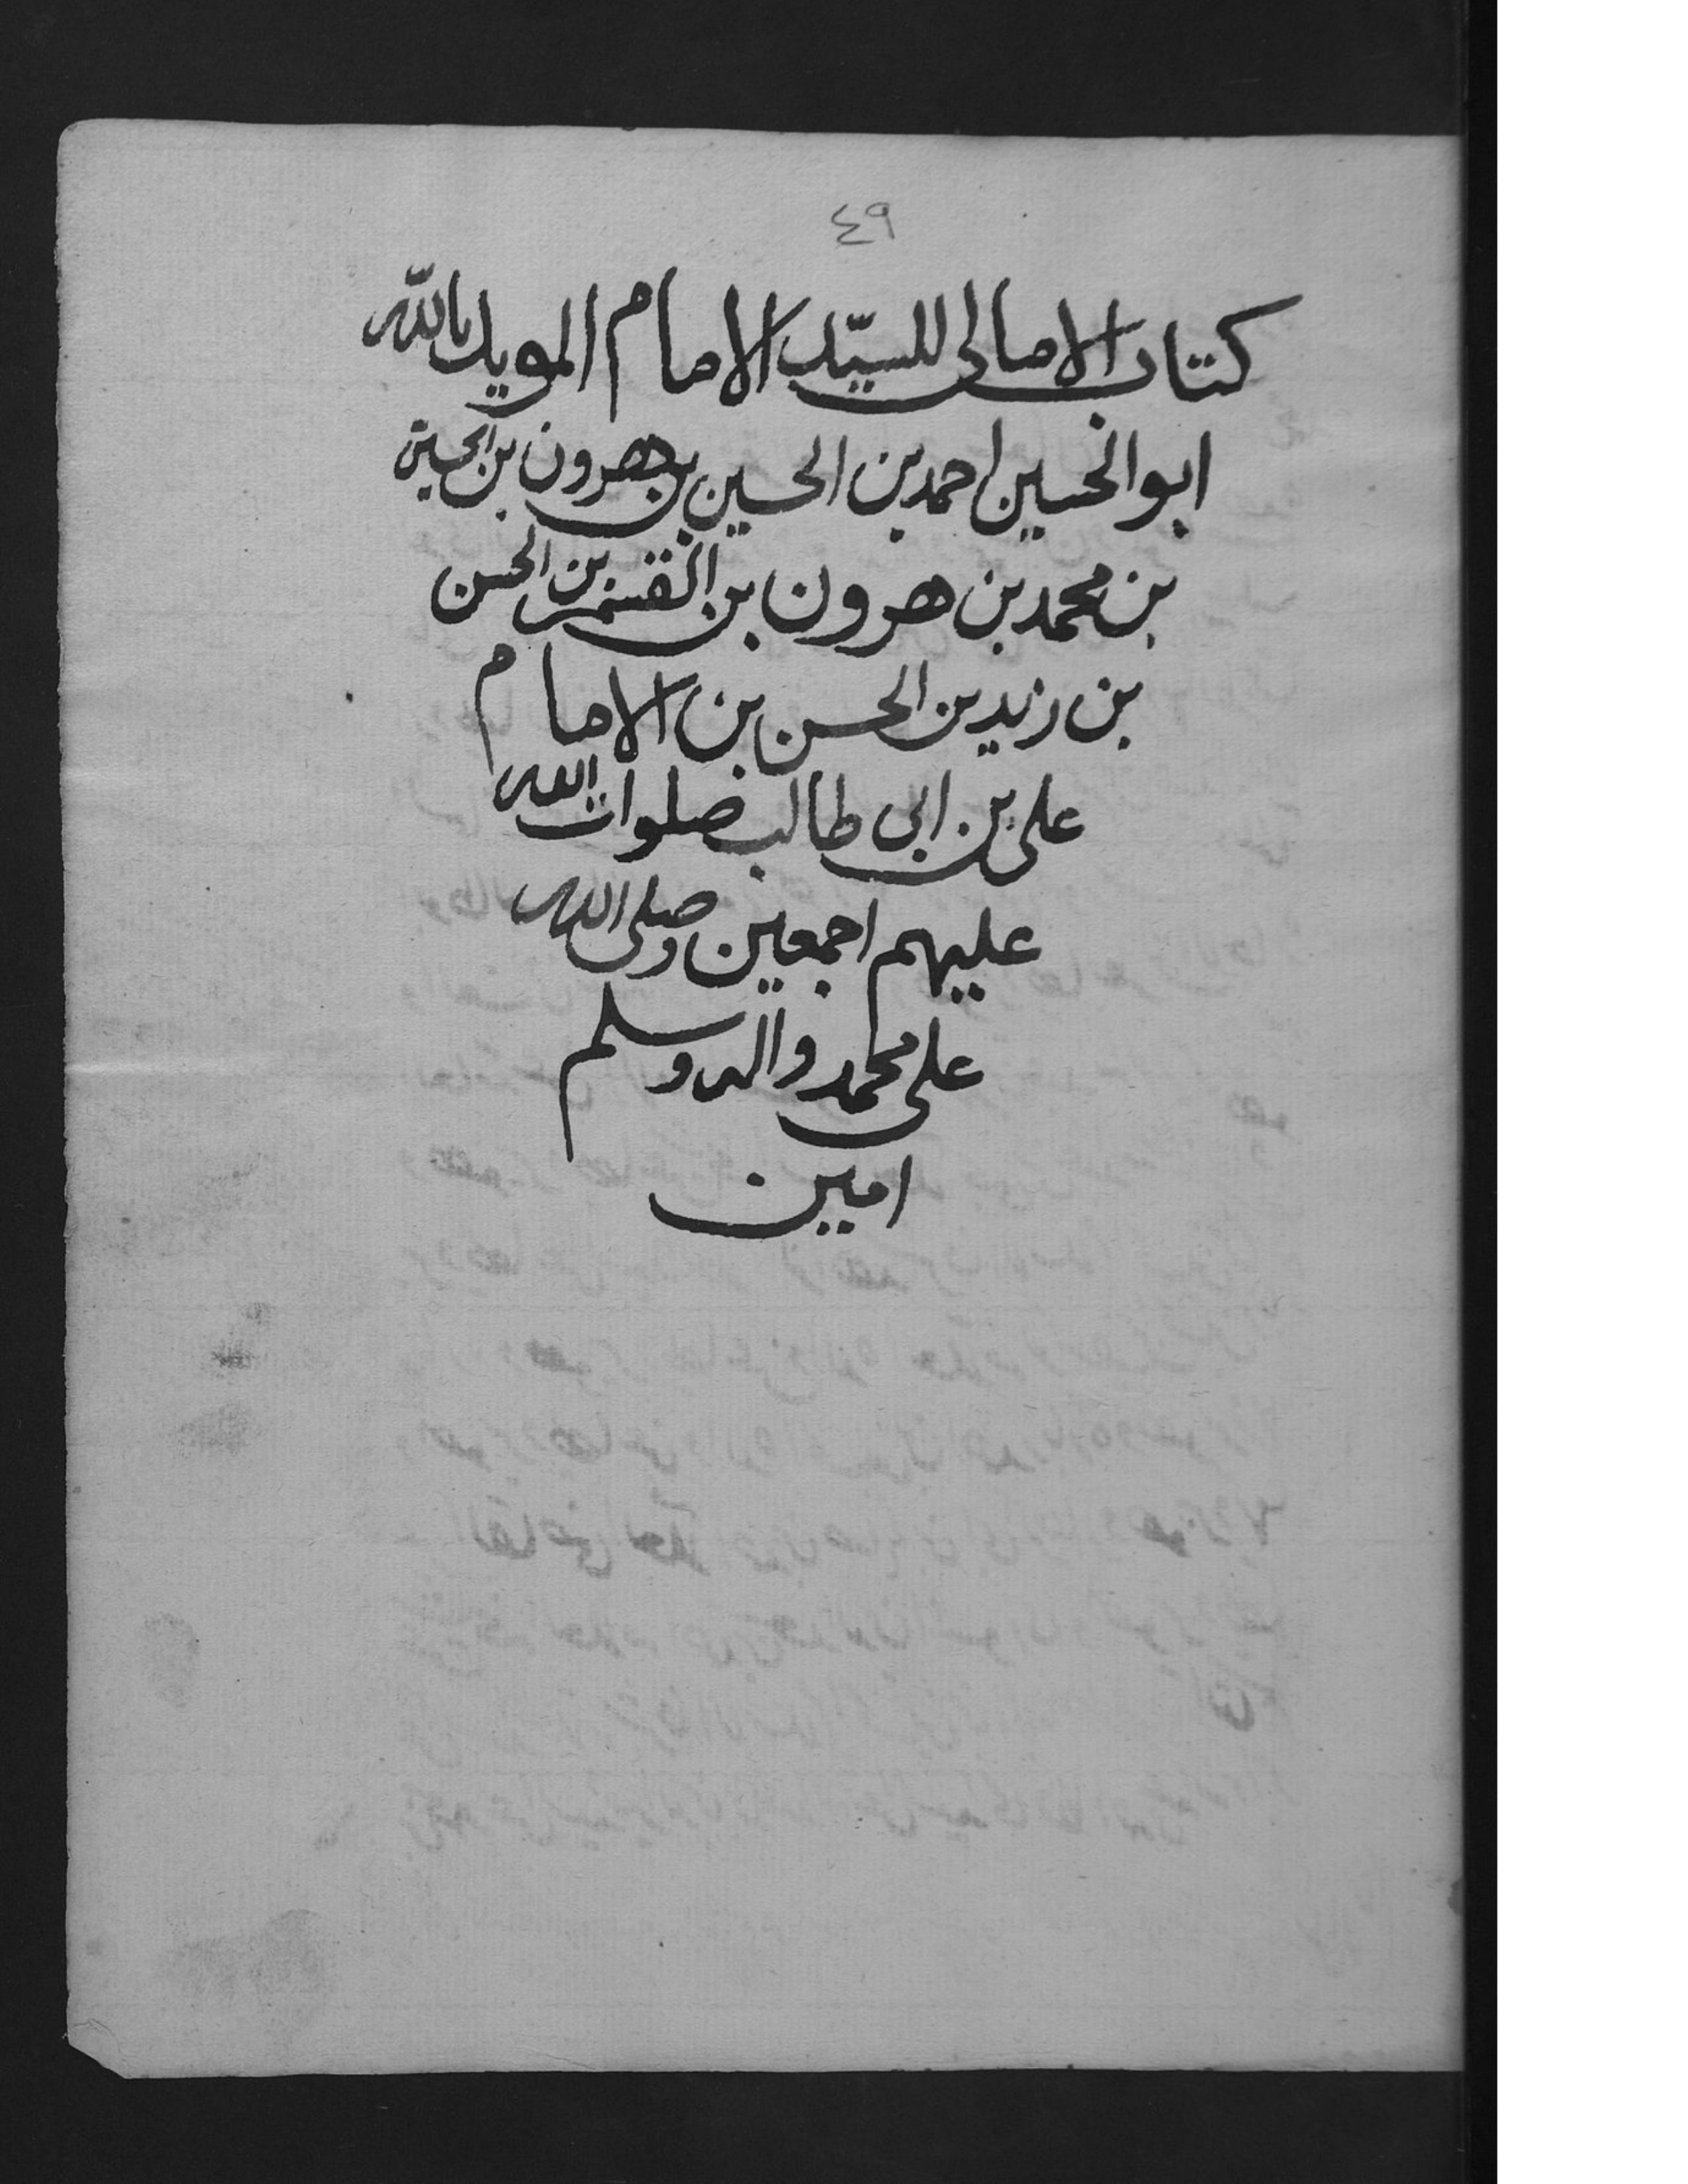 ٤٩
كتاب الامالى للسيّد الامام المويد بالله
ابو الحسين احمد بن الحسين بن هرون بن الحسين
بن محمد بن هرون بن القسم بن الحسن
بن زيد بن الحسن بن الامام
على بن ابى طالب صلوات الله
عليهم اجمعين وصلى الله
على محمد واله وسلم
امين